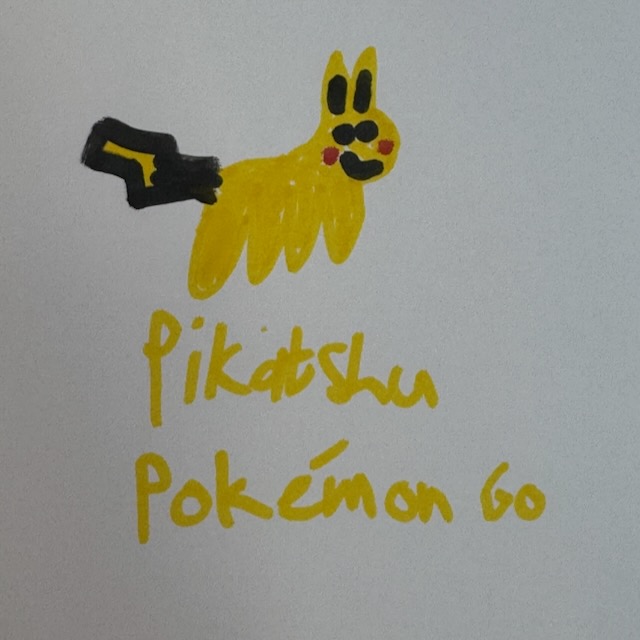 Pikatshu
Pokémon Go